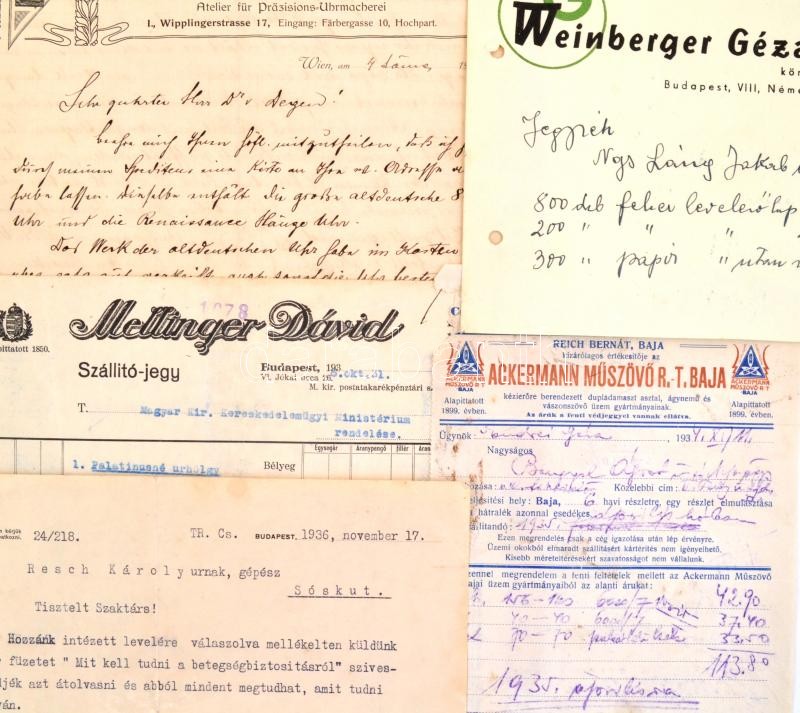 Atelier für Präzisions-Uhrmacherei
I., Wipplingerstrasse 17, Eingang: Färbergasse 10, Hochpart.
Wien, am 4
Sehr geehrter Herr Dr v Degen!
Beehre mich Ihnen höfl. mitzutheilen, daß ich
durch meinen Spediteur eine Kiste an Ihre w. Adresse
habe lassen. Dieselbe enthält die große altdeutsche 8
Uhr und die Renaissance Hänge Uhr.
Das Werk der altdeutschen Uhr habe im Kasten
Weinberger Géza
Budapest, VIII, Néme
Jegyzék
Ngs Láng Jakab
800 db fehér levelezőlap
200 " " "
300 " papír " után
1078
apíttatott 1850.
Mellinger Dávid
Szállító-jegy
Budapest, 193
5.okt.31.
VI. Jókai ucca 26.
M. kir. postatakarékpénztári
T. Magyar Kir. Kereskedelemügyi Ministérium
rendelése.
Egységár Aranypengő fillér
1. Palatinusné urhölgy
Bélyeg
REICH BERNÁT, BAJA
kizárólagos értékesítője az
ACKERMANN MŰSZÖVŐ R.-T. BAJA
ACKERMANN
MŰSZÖVŐ R T
BAJA
Alapíttatott
1899. évben.
kézierőre berendezett dupladamaszt asztal, ágynemű és
vászonszövő üzem gyártmányainak.
Az áruk a fenti védjeggyel vannak ellátva.
ACKERMANN
MŰSZÖVŐ R T
BAJA
Alapíttatott
1899. évben.
Ügynök: Géza 1934
Nagyságos
Közelebbi cím:
ljesítési hely: Baja, 6 havi részletre, egy részlet elmulasztása
hátralék azonnal esedékes
állítandó: 1935
Ezen megrendelés csak a cég igazolása után lép érvényre.
Üzemi okokból elmaradt szállításért kártérítés nem igényelhető.
Kisebb méreteltérésekért szavatosságot nem vállalunk.
zennel megrendelem a fenti feltételek mellett az Ackermann Műszövő
üzem gyártmányaiból az alanti árukat:
42.90
37.40
33.50
113.80
1935.
24/218. TR. Cs. BUDAPEST. 1936, november 17.
Resch Károly urnak, gépész
Sóskut.
Tisztelt Szaktárs!
Hozzánk intézett levelére válaszolva mellékelten küldünk
füzetet " Mit kell tudni a betegségbiztositásról" szives-
djék azt átolvasni és abból mindent megtudhat, amit tudni
ván.